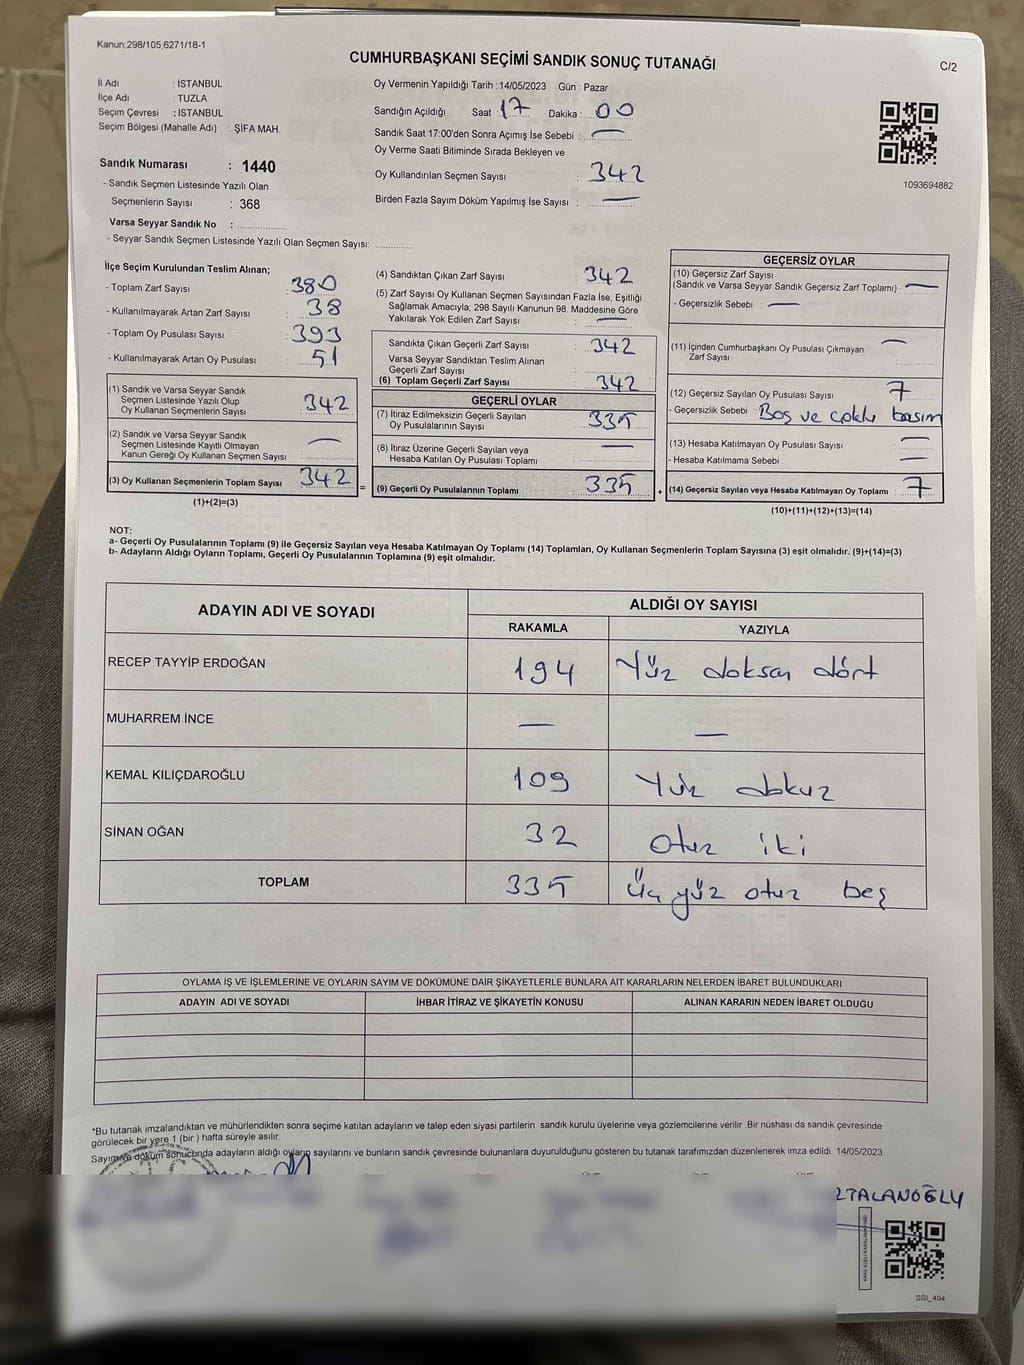 Kanun;298/105,6271/18-1
CUMHURBAŞKANI SEÇİMİ SANDIK SONUÇ TUTANAĞI
C/2
İl Adı : İSTANBUL
İlçe Adı : TUZLA
Seçim Çevresi : İSTANBUL
Seçim Bölgesi (Mahalle Adı) : ŞİFA MAH.
Oy Vermenin Yapıldığı Tarih : 14/05/2023 Gün : Pazar
Sandığın Açıldığı Saat : 17 Dakika : 00
Sandık Saat 17:00'den Sonra Açımış İse Sebebi : —
Oy Verme Saati Bitiminde Sırada Bekleyen ve
Oy Kullandırılan Seçmen Sayısı : 342
Birden Fazla Sayım Döküm Yapılmış İse Sayısı : —
1093694882
Sandık Numarası : 1440
- Sandık Seçmen Listesinde Yazılı Olan
Seçmenlerin Sayısı : 368
Varsa Seyyar Sandık No :
- Seyyar Sandık Seçmen Listesinde Yazılı Olan Seçmen Sayısı:
İlçe Seçim Kurulundan Teslim Alınan;
- Toplam Zarf Sayısı : 380
- Kullanılmayarak Artan Zarf Sayısı : 38
- Toplam Oy Pusulası Sayısı : 393
- Kullanılmayarak Artan Oy Pusulası : 51
(1) Sandık ve Varsa Seyyar Sandık
Seçmen Listesinde Yazılı Olup
Oy Kullanan Seçmenlerin Sayısı : 342
(2) Sandık ve Varsa Seyyar Sandık
Seçmen Listesinde Kayıtlı Olmayan
Kanun Gereği Oy Kullanan Seçmen Sayısı : —
(3) Oy Kullanan Seçmenlerin Toplam Sayısı : 342 =
(1)+(2)=(3)
(4) Sandıktan Çıkan Zarf Sayısı : 342
(5) Zarf Sayısı Oy Kullanan Seçmen Sayısından Fazla İse, Eşitliği
Sağlamak Amacıyla, 298 Sayılı Kanunun 98. Maddesine Göre
Yakılarak Yok Edilen Zarf Sayısı : —
Sandıkta Çıkan Geçerli Zarf Sayısı : 342
Varsa Seyyar Sandıktan Teslim Alınan
Geçerli Zarf Sayısı :
(6) Toplam Geçerli Zarf Sayısı : 342
GEÇERLİ OYLAR
(7) İtiraz Edilmeksizin Geçerli Sayılan
Oy Pusulalarının Sayısı : 335
(8) İtiraz Üzerine Geçerli Sayılan veya
Hesaba Katılan Oy Pusulası Toplamı : —
(9) Geçerli Oy Pusulalarının Toplamı : 335 +
GEÇERSİZ OYLAR
(10) Geçersiz Zarf Sayısı
(Sandık ve Varsa Seyyar Sandık Geçersiz Zarf Toplamı) : —
- Geçersizlik Sebebi : —
(11) İçinden Cumhurbaşkanı Oy Pusulası Çıkmayan
Zarf Sayısı : —
(12) Geçersiz Sayılan Oy Pusulası Sayısı : 7
- Geçersizlik Sebebi : Boş ve çoklu basım
(13) Hesaba Katılmayan Oy Pusulası Sayısı : —
- Hesaba Katılmama Sebebi : —
(14) Geçersiz Sayılan veya Hesaba Katılmayan Oy Toplamı : 7
(10)+(11)+(12)+(13)=(14)
NOT:
a- Geçerli Oy Pusulalarının Toplamı (9) ile Geçersiz Sayılan veya Hesaba Katılmayan Oy Toplamı (14) Toplamları, Oy Kullanan Seçmenlerin Toplam Sayısına (3) eşit olmalıdır. (9)+(14)=(3)
b- Adayların Aldığı Oyların Toplamı, Geçerli Oy Pusulalarının Toplamına (9) eşit olmalıdır.
ADAYIN ADI VE SOYADI
ALDIĞI OY SAYISI
RAKAMLA YAZIYLA
RECEP TAYYİP ERDOĞAN 194 Yüz doksan dört
MUHARREM İNCE — —
KEMAL KILIÇDAROĞLU 109 Yüz dokuz
SİNAN OĞAN 32 otuz iki
TOPLAM 335 Üç yüz otuz beş
OYLAMA İŞ VE İŞLEMLERİNE VE OYLARIN SAYIM VE DÖKÜMÜNE DAİR ŞİKAYETLERLE BUNLARA AİT KARARLARIN NELERDEN İBARET BULUNDUKLARI
ADAYIN ADI VE SOYADI İHBAR İTİRAZ VE ŞİKAYETİN KONUSU ALINAN KARARIN NEDEN İBARET OLDUĞU
*Bu tutanak imzalandıktan ve mühürlendikten sonra seçime katılan adayların ve talep eden siyasi partilerin sandık kurulu üyelerine veya gözlemcilerine verilir. Bir nüshası da sandık çevresinde
görülecek bir yere 1 (bir ) hafta süreyle asılır.
Sayım ve döküm sonucunda adayların aldığı oyların sayılarını ve bunların sandık çevresinde bulunanlara duyurulduğunu gösteren bu tutanak tarafımızdan düzenlenerek imza edildi. 14/05/2023
SSI_494